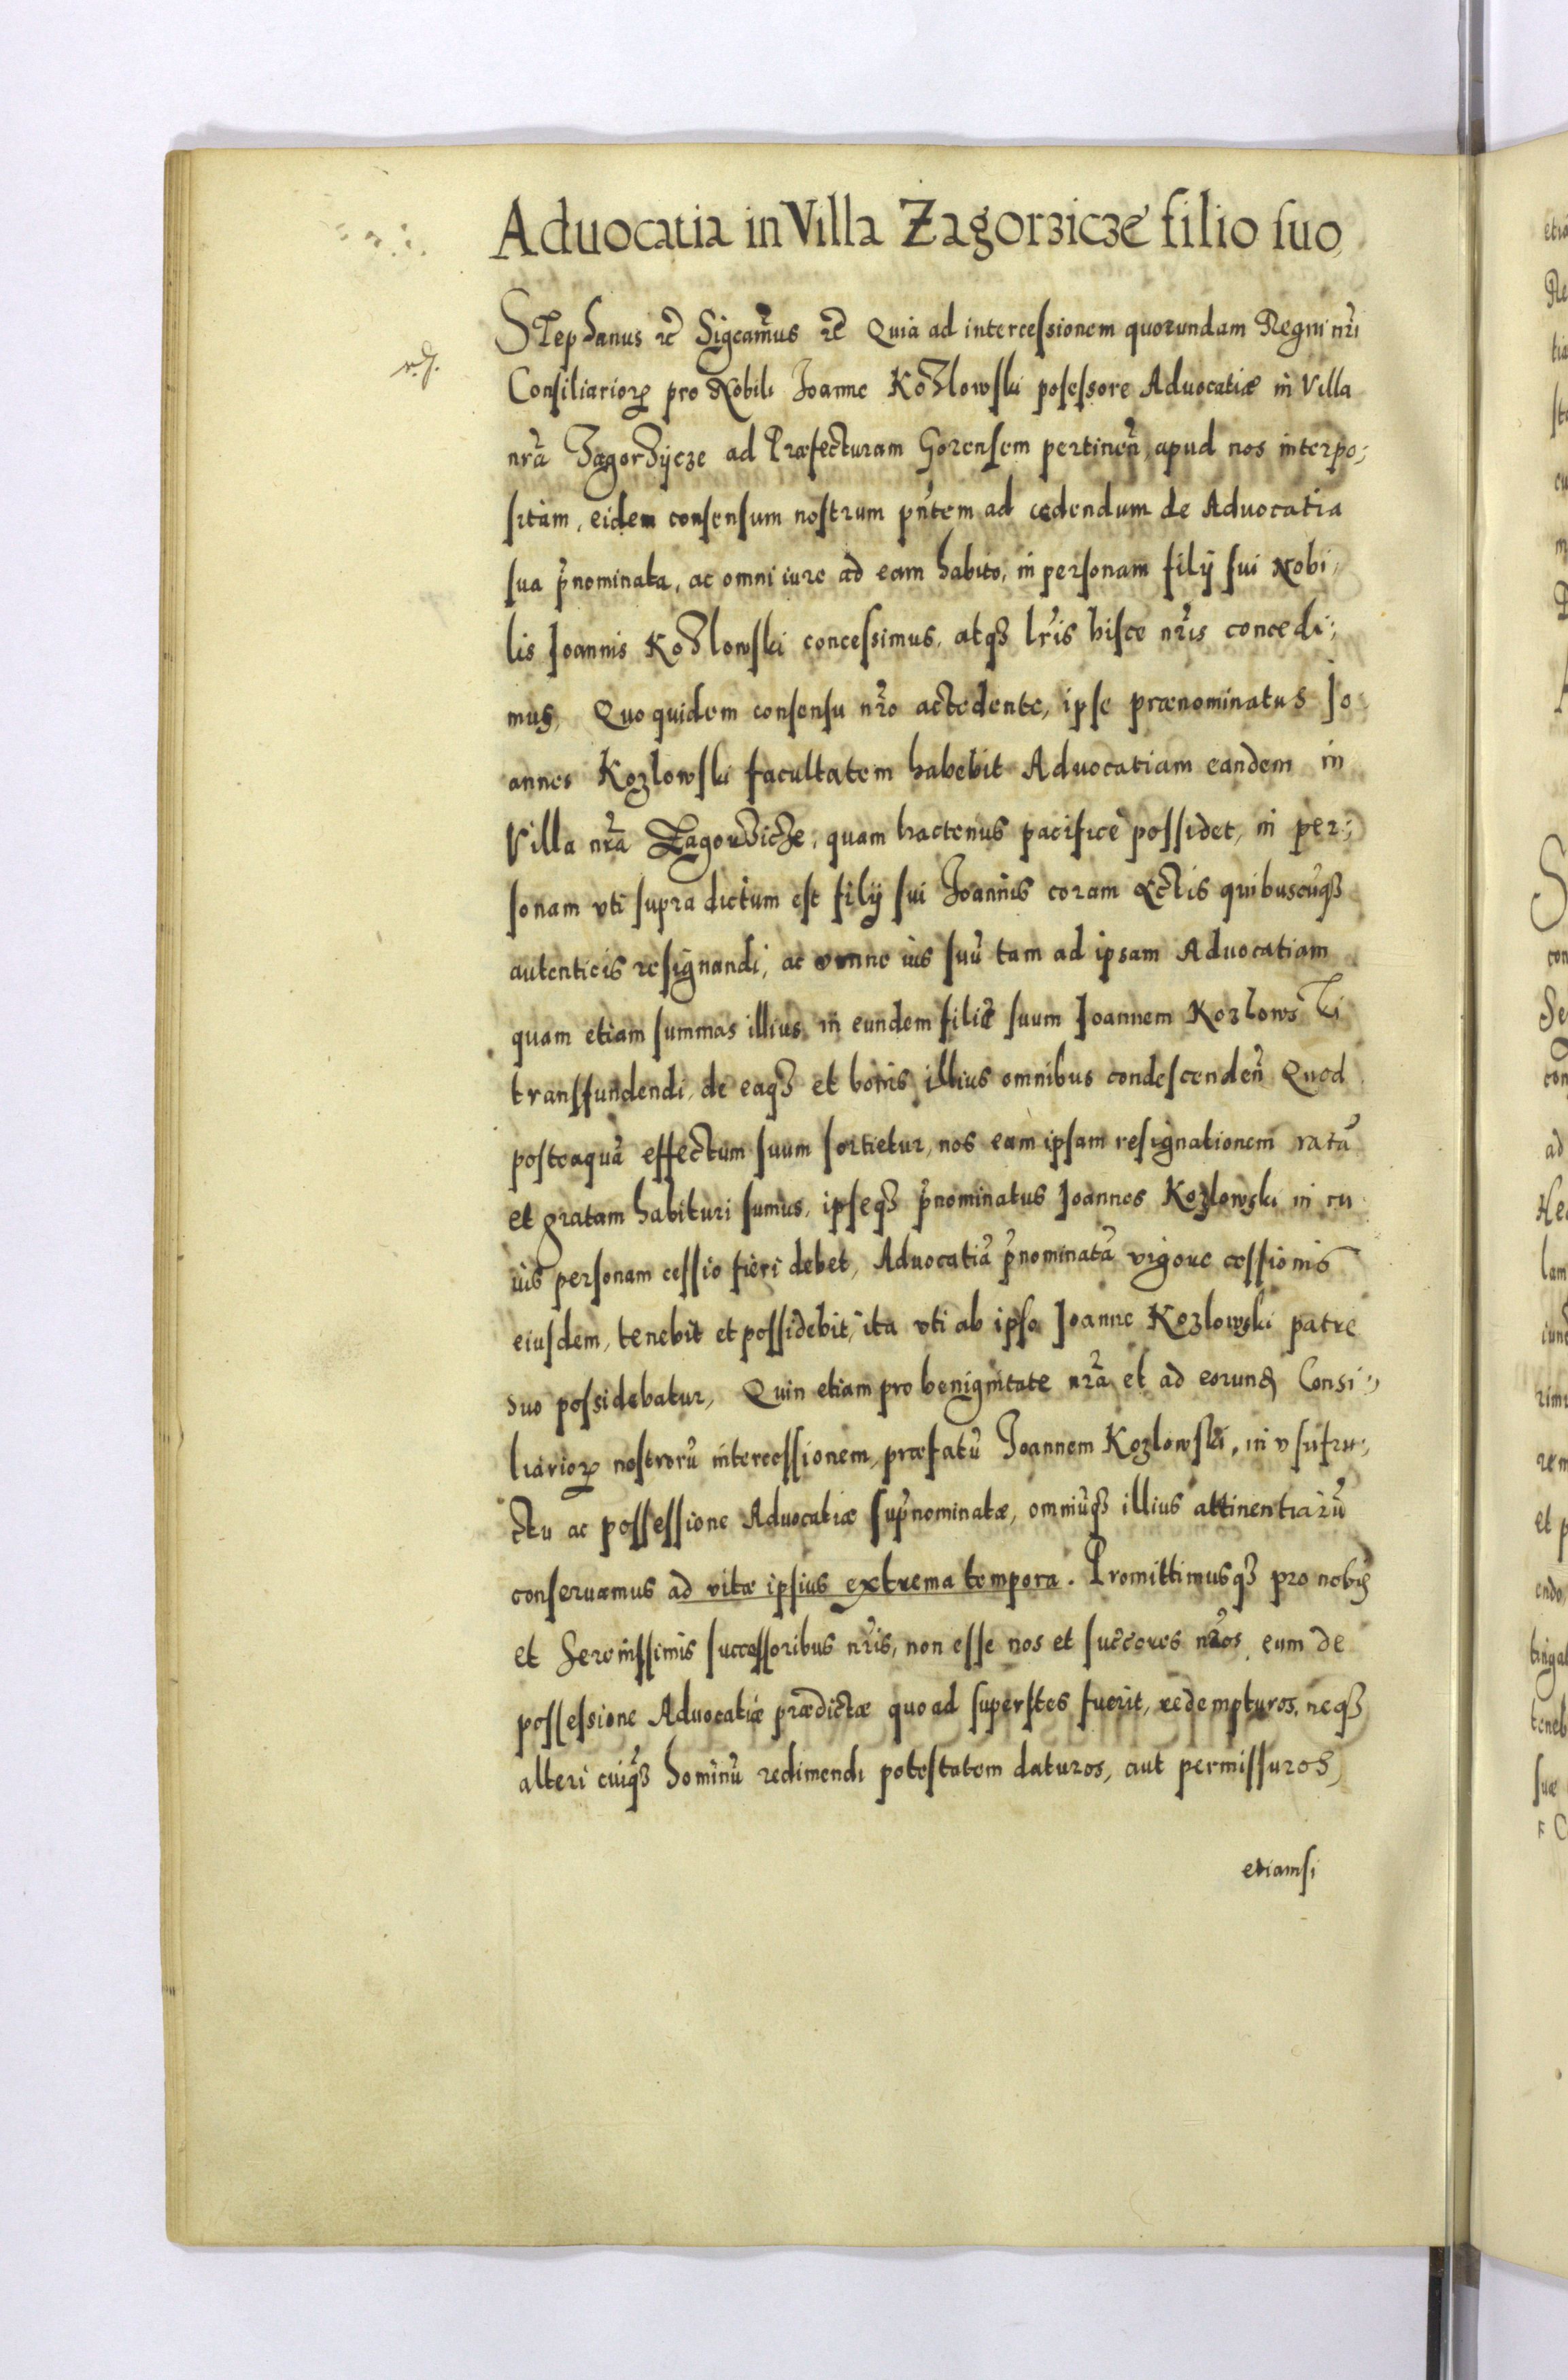 Aduocatia in Villa Zagorzicze filio suo,
Stephanus etc Sigcam̃us etc Quia ad intercessionem quorundam Regni nr̃i
Consiliarioꝝ pro Nobili Joanne Kozlowski posessore Aduocatiæ in Villa
nrã Zagorzycze ad Præfecturam Gorensem pertineñ, apud nos interpo;
sitam, eidem consensum nostrum pñtem ad cedendum de Aduocatia
sua p̃nominata, ac omni iure ad eam habito, in personam filÿ sui Nobi,
lis Joannis Kozlowski concessimus, atqꝫ lr̃is hisce nr̃is concedi;
mus, Quo quidem consensu nr̃o accedente, ipse prænominatus Jo,
annes Kozlowski facultatem habebit Aduocatiam eandem in
Villa nrã Zagorzicze, quam hactenus pacificè possidet, in per;
sonam vti supra dictum est filÿ sui Joannis coram Actis quibuscũqꝫ
autenticis resignandi, ac omne ius suũ tam ad ipsam Aduocatiam
quam etiam summas illius in eundem filiũ suum Joannem Kozlowski
transfundendi, de eaqꝫ et bonis illius omnibus condescendeñ Quod
posteaquã effectum suum sortietur, nos eam ipsam resignationem ratã
et gratam habituri sumus, ipseqꝫ p̃nominatus Joannes Kozlowski in cu
ius personam cessio fieri debet, Aduocatiã p̃nominatã vigore cessionis
eiusdem, tenebit et possidebit, ita vti ab ipso Joanne Kozlowski patre
suo possidebatur, Quin etiam pro benignitate nrã et ad eorunđ Consi;
liarioꝝ nostrorũ intercessionem, præfatũ Joannem Kozlowski, in vsufru;
ctu ac possessione Aduocatiæ sup̃nominatæ, omniũqꝫ illius attinentiarũ
conseruamus ad vitæ ipsius extrema tempora. Promittimusqꝫ pro nobis
et Serenissimis successoribus nr̃is, non esse nos et succores nr̃os eum de
possessione Aduocatiæ prædictæ quoad superstes fuerit, redempturos, neqꝫ
alteri cuiqꝫ hominũ redimendi potestatem daturos, aut permissuros,
etiamsi